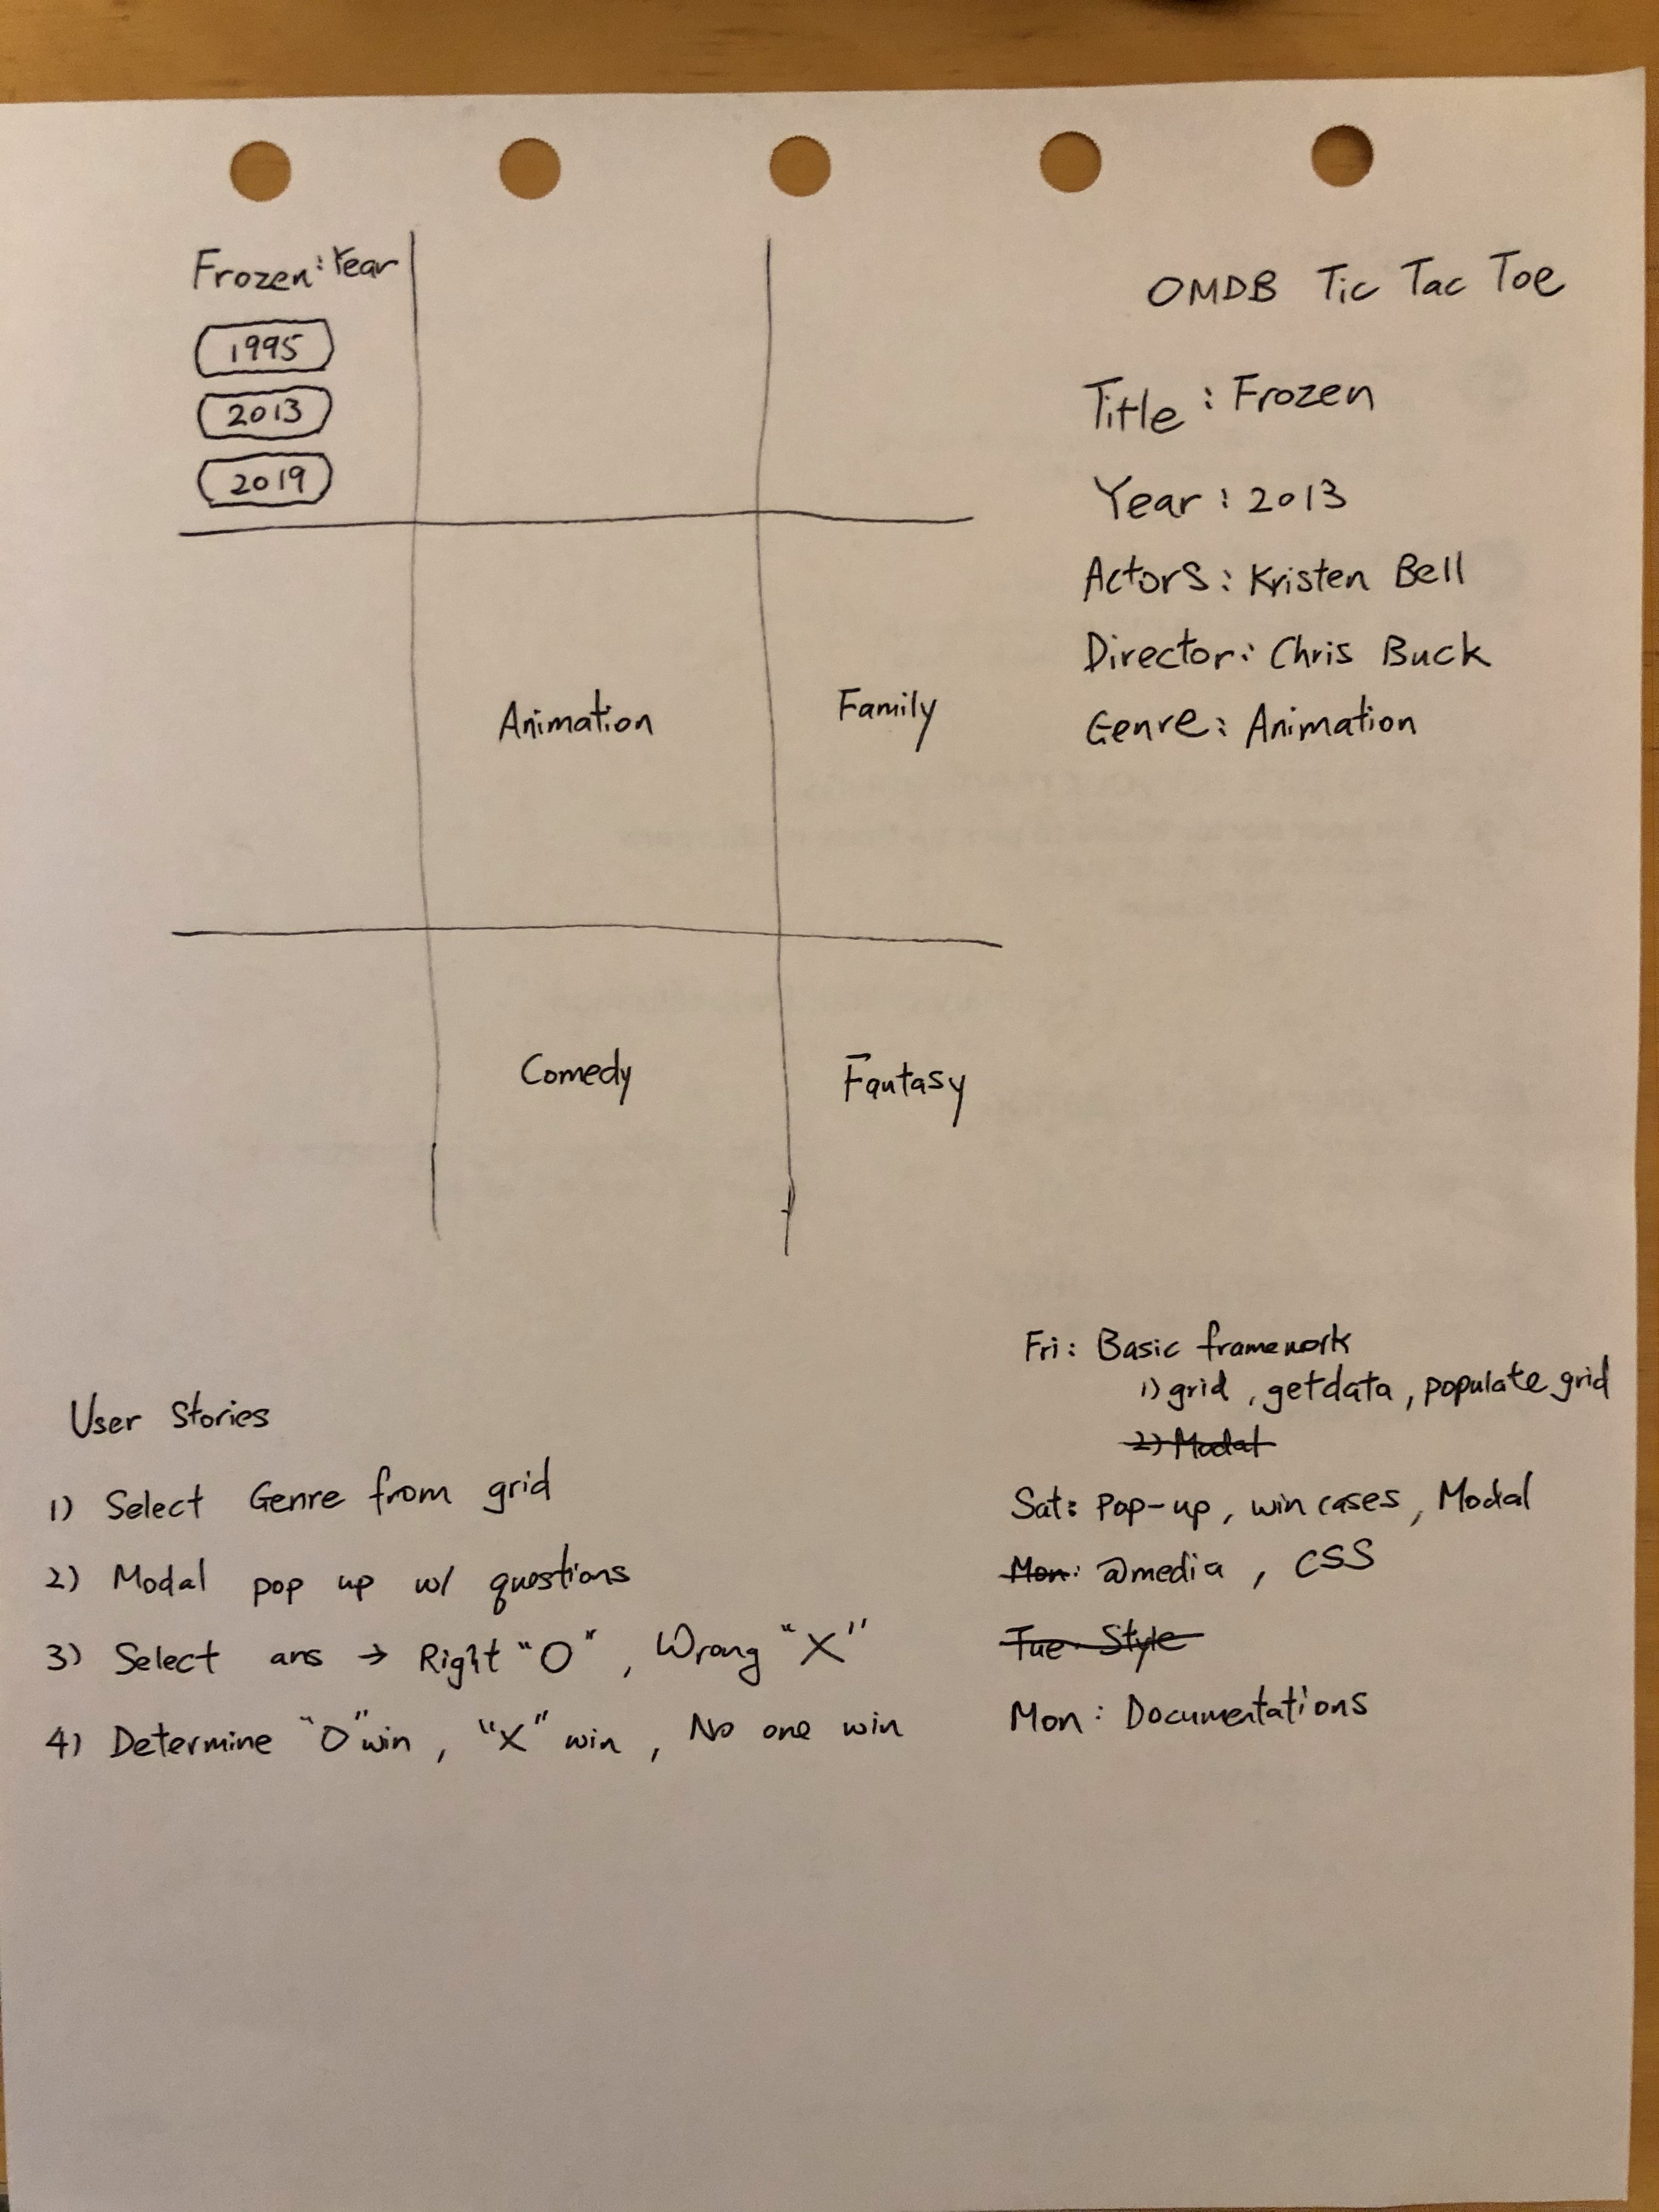 OMDB Tic Tac Toe
Frozen: Year
1995
2013
2019
Animation
Family
Comedy
Fantasy
Title: Frozen
Year: 2013
Actors: Kristen Bell
Director: Chris Buck
Genre: Animation
User Stories
1) Select Genre from grid
2) Modal pop up w/ questions
3) Select ans → Right "O", Wrong "X"
4) Determine "O" win, "X" win, No one win
Fri: Basic framework
1) grid, getdata, populate grid
2) Modal
Sat: Pop-up, win cases, Modal
Mon: @media, CSS
Tue: Style
Mon: Documentations